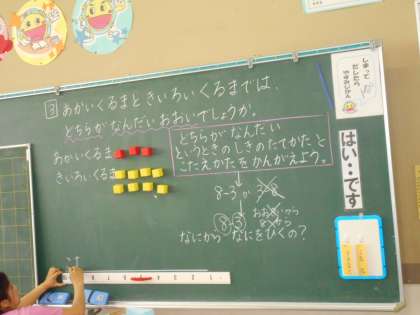 3 あかいくるまときいろいくるまでは、
どちらがなんだいおおいでしょうか。
どちらがなんたい
というときのしきのたてかたと
こたえかたをかんがえよう。
あかいくるま
きいろいくるま
8-3か 3-8
8-3
なにから なにをひくの?
しまって
だしたら
はい・・です